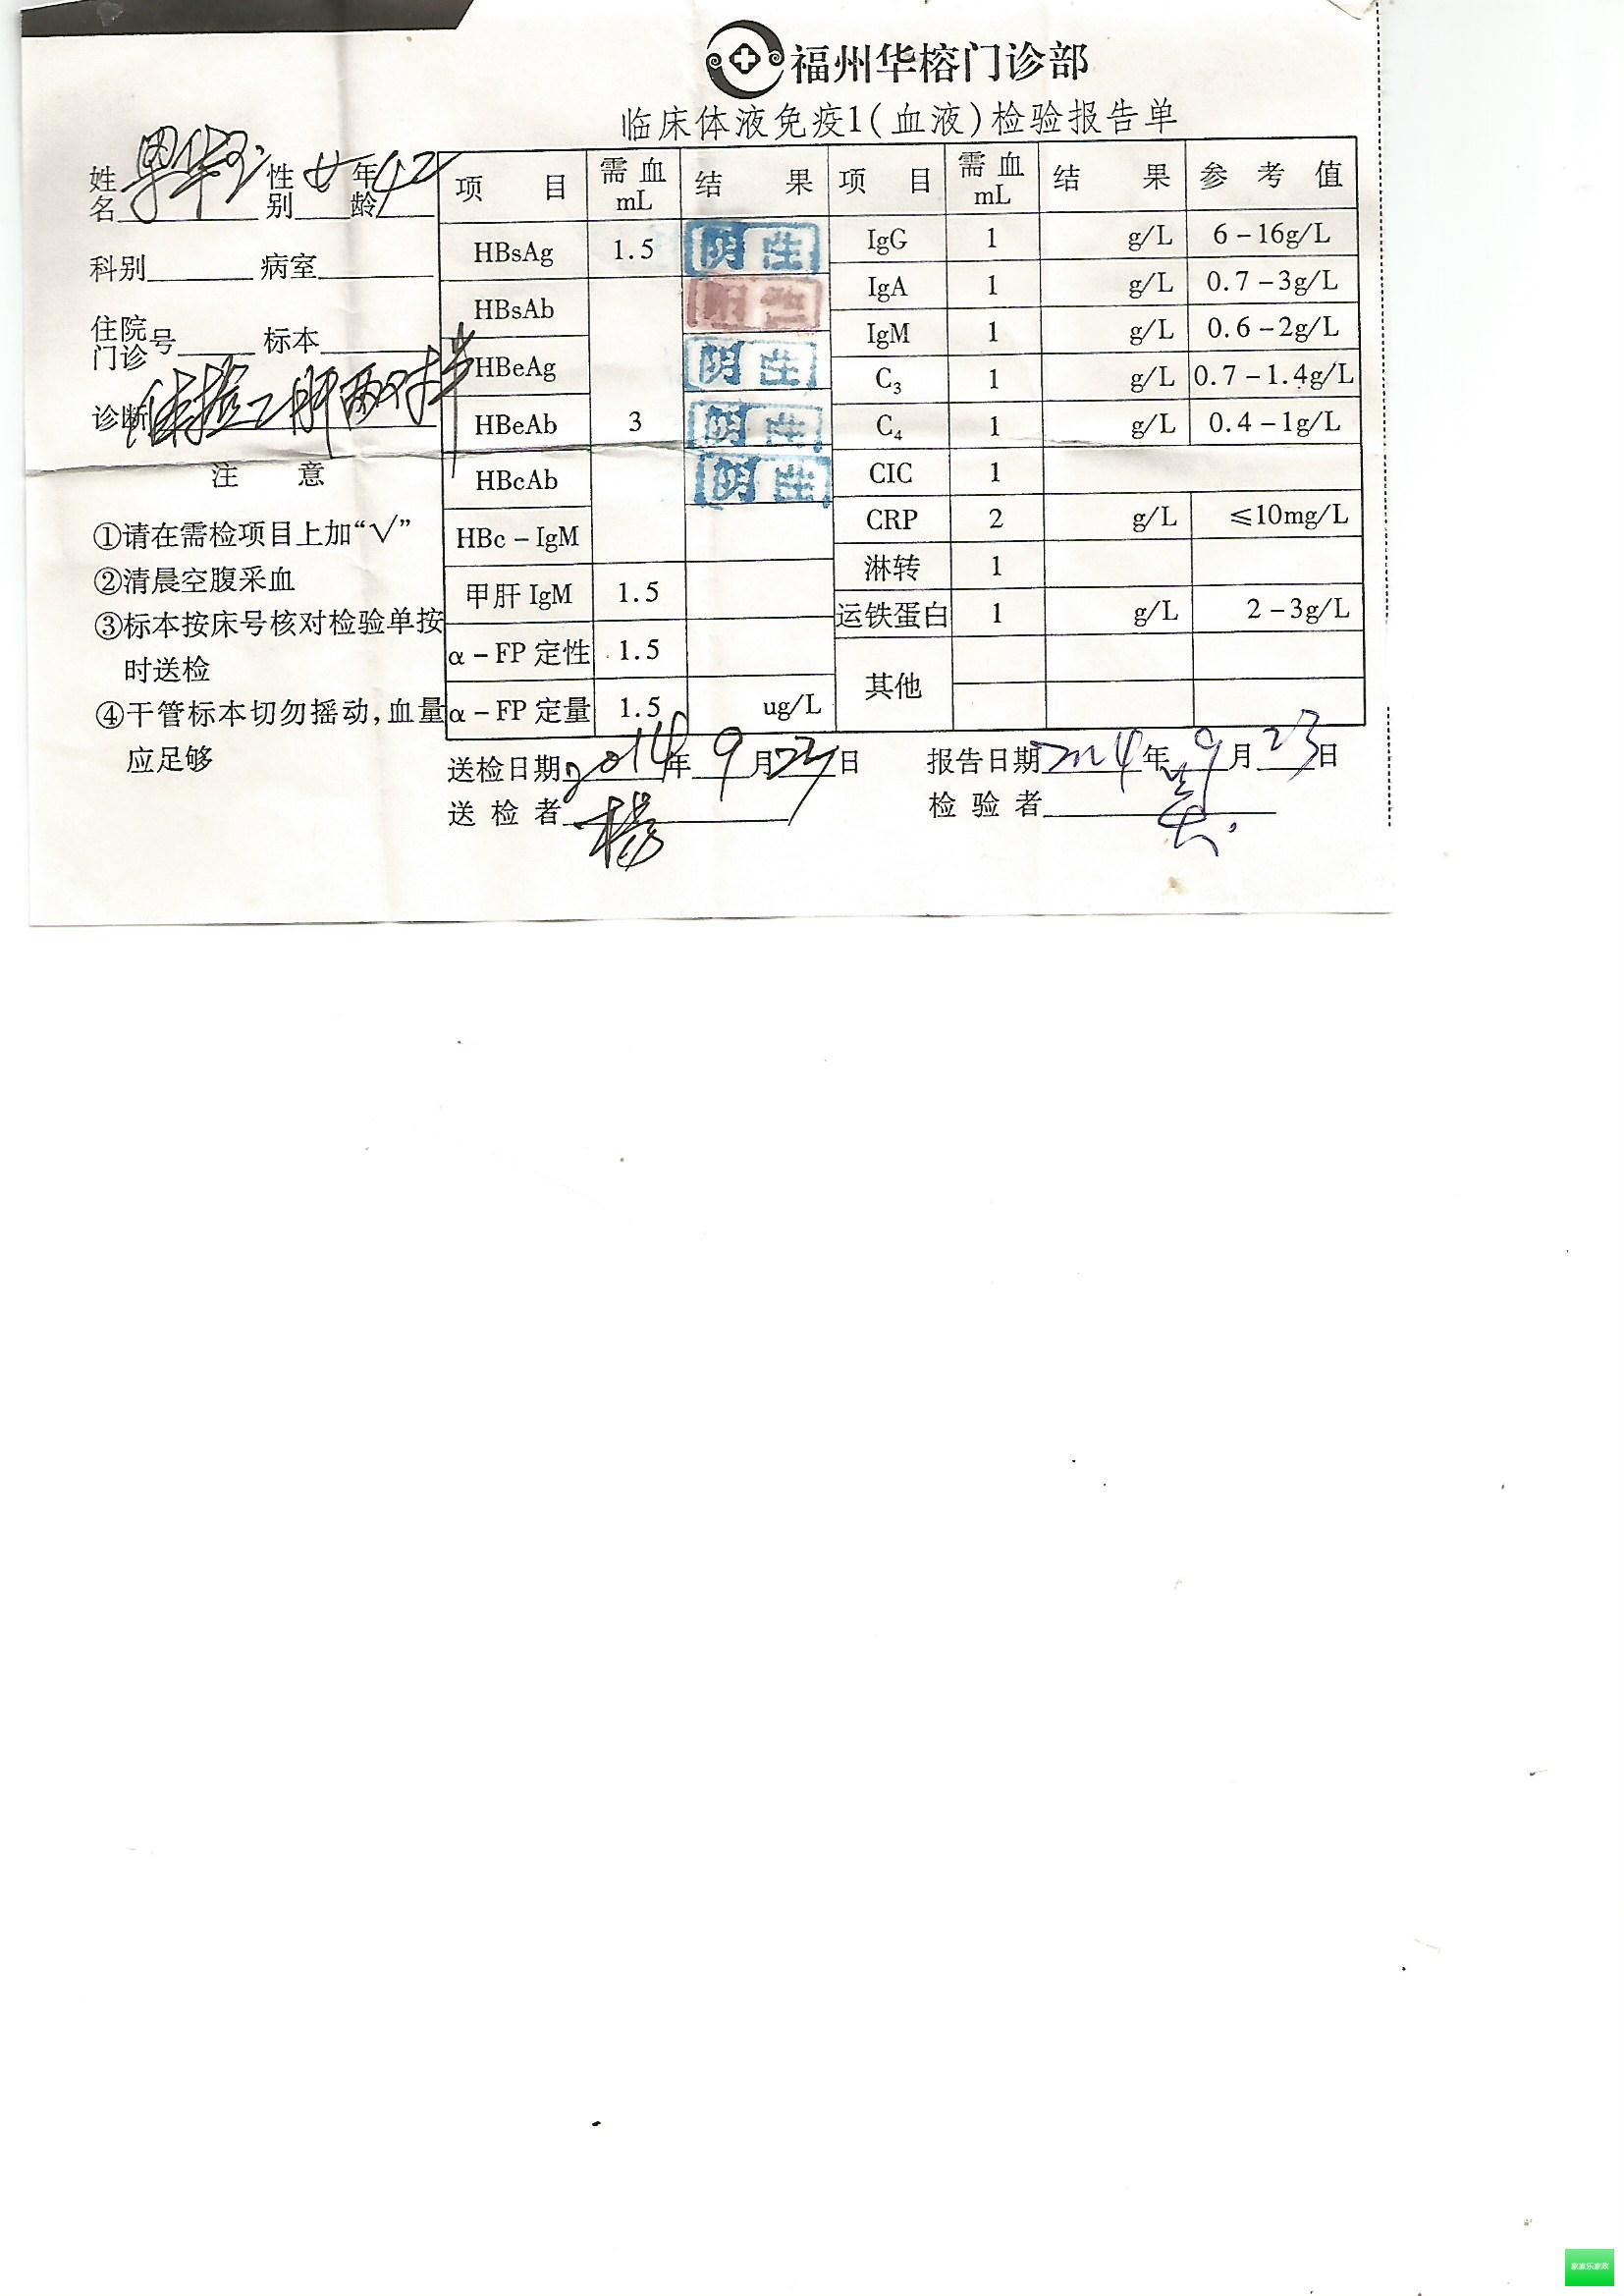 福州华榕门诊部
临床体液免疫1(血液)检验报告单
姓名 性别 女 年龄 42
科别 病室
住院门诊号 标本
诊断 体检乙肝两对半
注 意
①请在需检项目上加“√”
②清晨空腹采血
③标本按床号核对检验单按
时送检
④干管标本切勿摇动,血量
应足够
项 目 需血mL 结 果 项 目 需血mL 结 果 参 考 值
HBsAg 1.5 阴性 IgG 1 g/L 6-16g/L
HBsAb IgA 1 g/L 0.7-3g/L
HBeAg 阴性 IgM 1 g/L 0.6-2g/L
HBeAb 3 阴性 C3 1 g/L 0.7-1.4g/L
HBcAb 阴性 C4 1 g/L 0.4-1g/L
HBc-IgM CIC 1
甲肝 IgM 1.5 CRP 2 g/L ≤10mg/L
α-FP 定性 1.5 淋转 1
α-FP 定量 1.5 ug/L 运铁蛋白 1 g/L 2-3g/L
其他
送检日期 2014年 9月23日 报告日期 2014年 9月23日
送 检 者 杨 检 验 者
家家乐家政